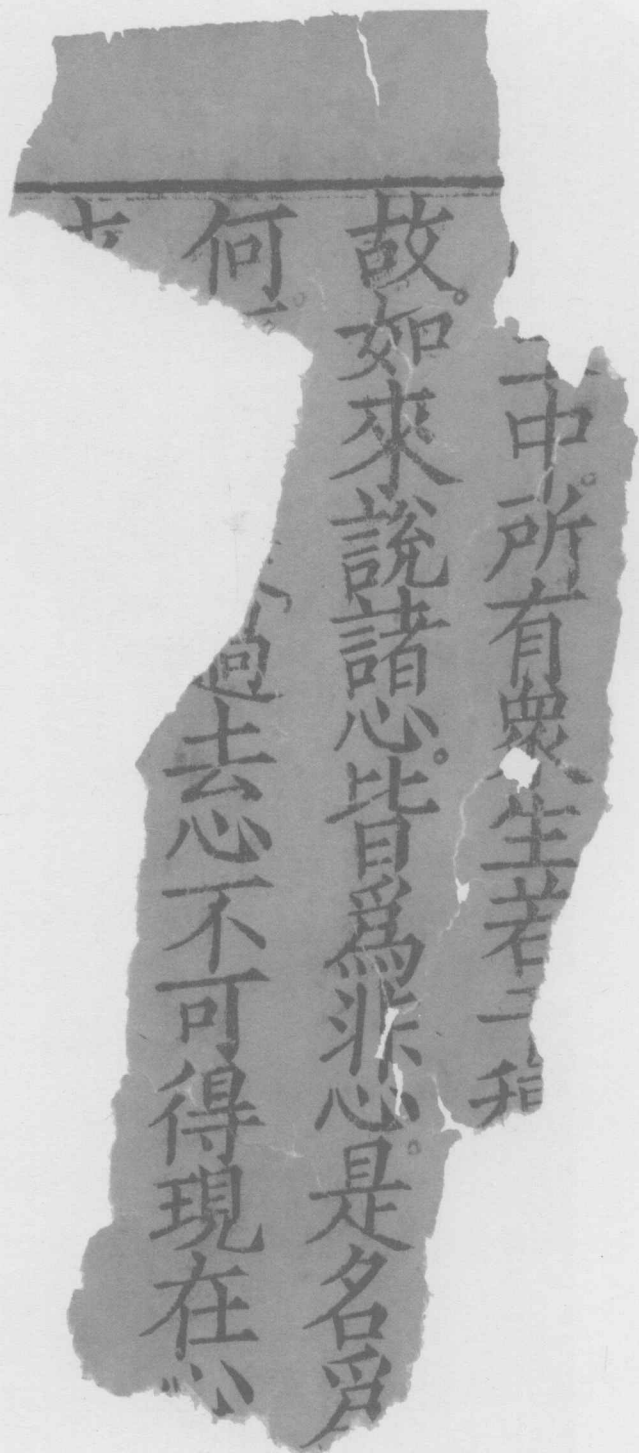 中。所有衆生若干種
故。如來說諸心。皆爲非心。是名爲
何。過去心不可得現在心